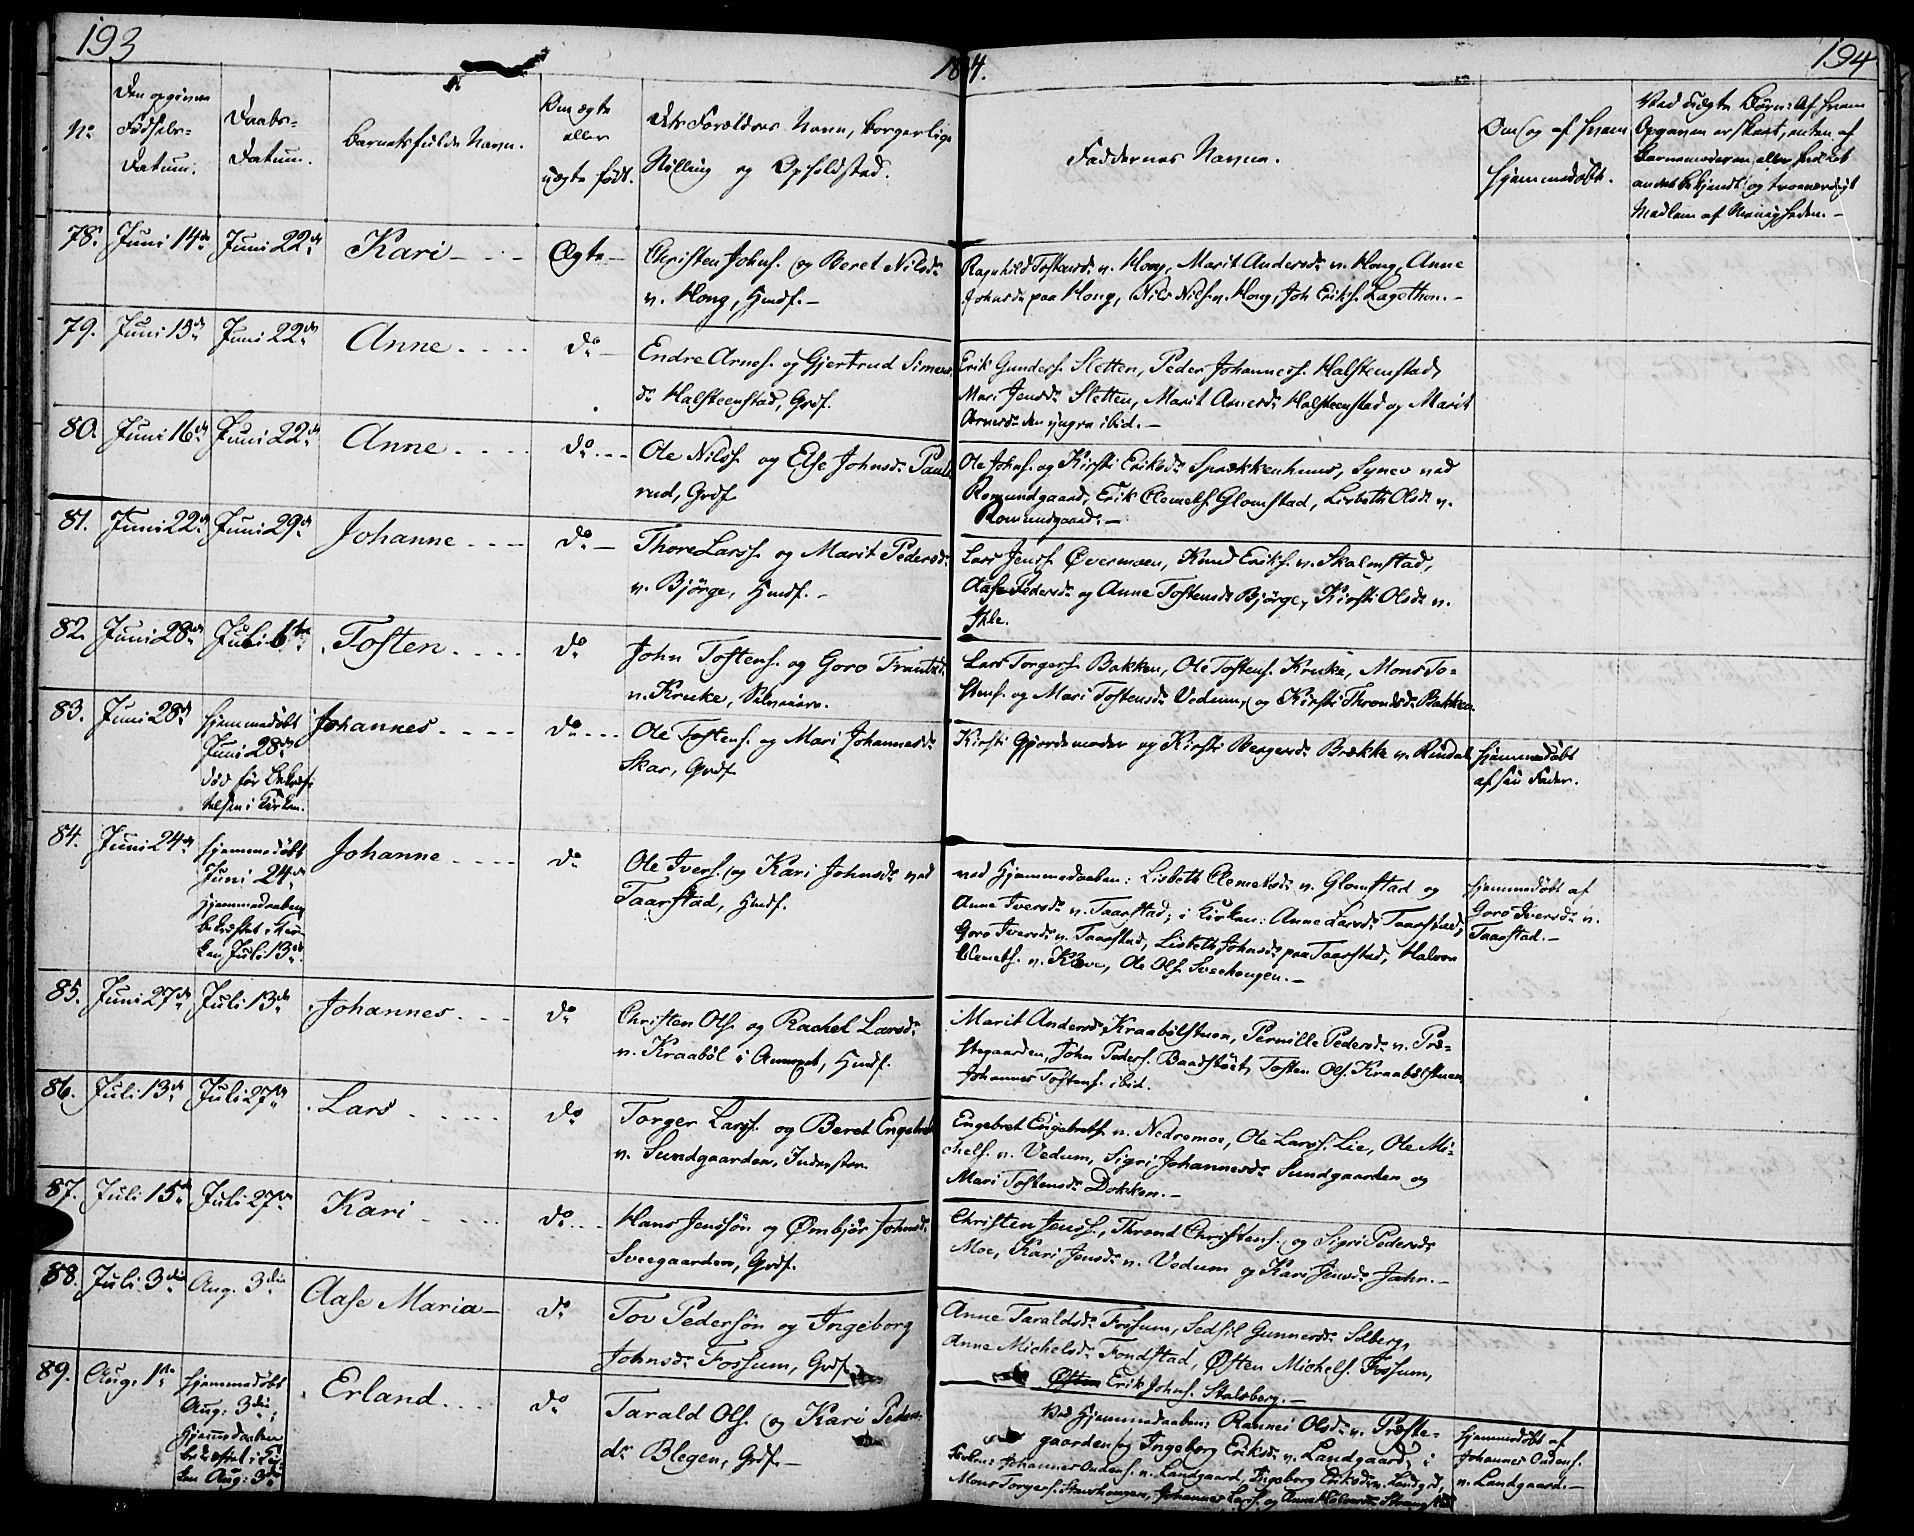 193
18 4.
194
No
Den opgivne
Fødsels-
Datum.
Daabs-
Datum.
Barnets fulde Navn.
Om ægte
eller
uægte født.
Dets Forældres Navn, borgerlige
Stilling og Opholdsted.
Faddernes Navne.
Om og af hvem
hjemmedøbt.
Ved uægte Børn: Af hvem
Opgaven er skeet, enten af
Barnemoderen eller hvilket
andet bekjendt og troeværdigt
Medlem af Menigheden.-
78. Juni 14de Juni 22de Kari - - - Ægte - Christen Johns. og Beret Nilsdr
v. Hong, Huusf. -
Ragnhild Tostensdr v. Hong, Marit Andersdr v. Hong, Anne
Johnsdr paa Hong, Nils Nils. v. Hong, Joh Eriks. Lagethon. -
79. Juni 15de Juni 22de Anne - - - do - Endre Arnes. og Gjertrud Simens
dr Halsteenstad, Grdf.
Erik Gunders. Sletten, Peder Johanness. Halsteenstad,
Mari Jensdr Sletten, Marit Arnesdr Halsteenstad og Marit
Arnesdr den yngre ibid. -
80. Juni 16de Juni 22de Anne - - - do - - - Ole Nilss. og Else Johnsdr Pauls
rud, Grdf
Ole Johns. og Kirsti Eriksdr Sprækkenhuus, Synev ved
Romundgaard, Erik Clemets. Glomstad, Lisbeth Olsdr v.
Romundgaard. -
81. Juni 22de Juni 29de Johanne - - - do - Thore Larss. og Marit Pedersdr
v. Bjørge, Huusf. -
Lars Jenss. Øvermoen, Knud Eriks. v. Skalmstad,
Aase Pedersdr og Anne Tostensdr Bjørge, Kirsti Olsdr v.
Ihle.
82. Juni 28de Juli 6te Tosten - - - do John Tostens. og Goro Frantsdr
v. Kruke, Selveiere.
Lars Torgers. Bakken, Ole Tostens. Kruke, Mons To-
stens. og Mari Tostensdr Vedum, og Kirsti Throndsdr Bakken.
83. Juni 28de hjemmedøbt
Juni 28de
død før Bekræf-
telsen i Kirken.
Johannes - - - - do - - - Ole Tostens. og Mari Johannesdr
Skar, Grdf
Kirsti Gjordemoder og Kirsti Bergersdr Brække v. Rindal
hjemmedøbt
af sin Fader.
84. Juni 24de hjemmedøbt
Juni 24de
Hjemmedaaben
bekræftet i Kir-
ken Juli 13de
Johanne - - - - do Ole Ivers. og Kari Johnsdr ved
Taarstad, Huusf.
ved Hjemmedaaben: Lisbeth Clemetsdr v. Glomstad og
Anne Iversdr v. Taarstad; i Kirken: Anne Larsdr Taarstad,
Goro Iversdr v. Taarstad, Lisbeth Johnsdr paa Taarstad, Halvor
Clemets. v. Kleve, Ole Ols. Sveehougen. -
hjemmedøbt af
Goro Iversdr v.
Taarstad. -
85. Juni 27de Juli 13de Johannes - - - do Christen Ols. og Rachel Larsdr
v. Kraabøl i Annexet, Huusf.
Marit Andersdr Kraabølstuen, Pernille Pedersdr v. Præ-
stegaarden, John Peders. Baadstøet, Tosten Ols. Kraabølstuen
Johannes Tostens. ibid.
86. Juli 13de Juli 27de Lars - - - - do Torger Larss. og Beret Engebrets
v. Sundgaarden, Inderster
Engebret Engebrets. v. Nedremoe, Ole Larss. Lie, Ole Mi-
chels. v. Vedum, Sigri Johannesdr Sundgaarden og
Mari Tostensdr Dokken. -
87. Juli 15de Juli 27de Kari - - - - do - - - Hans Jenssøn og Ømbjør Johnsdr
Sveegaarden, Grdf.
Christen Jenss., Thrond Christens. og Sigri Pedersdr
Moe, Kari Jensdr v. Vedum og Kari Jensdr Jahr. -
88. Juli 3die Aug. 3die Aase Maria - do Tov Pedersøn og Ingeborg
Johnsdr Fossum, Grdf.
Anne Taraldsdr Fossum, Sedsil Gunnersdr Solberg,
Anne Michelsdr Fondstad, Østen Michels. Fossum,
Østen Erik Johns. Stalsberg. -
89. Aug. 1ste hjemmedøbt
Aug. 3die;
Hjemmedaaben
bekræftet i Kir-
ken Aug: 3die
Erland - - - do Tarald Ols. og Kari Peders-
dr Blegen, Grdf. -
Ved Hjemmedaaben: Rannei Olsdr v. Præste-
gaarden og Ingeborg Eriksdr v. Landgaard; i
Kirken: Johannes Ondens. v. Landgaard, Ingeborg Eriksdr v. Landgrd,
Mons Torgers. Staushougen, Johannes Larss. og Anne
hjemmedøbt af
Johannes Ondens.
v. Landgaard. -